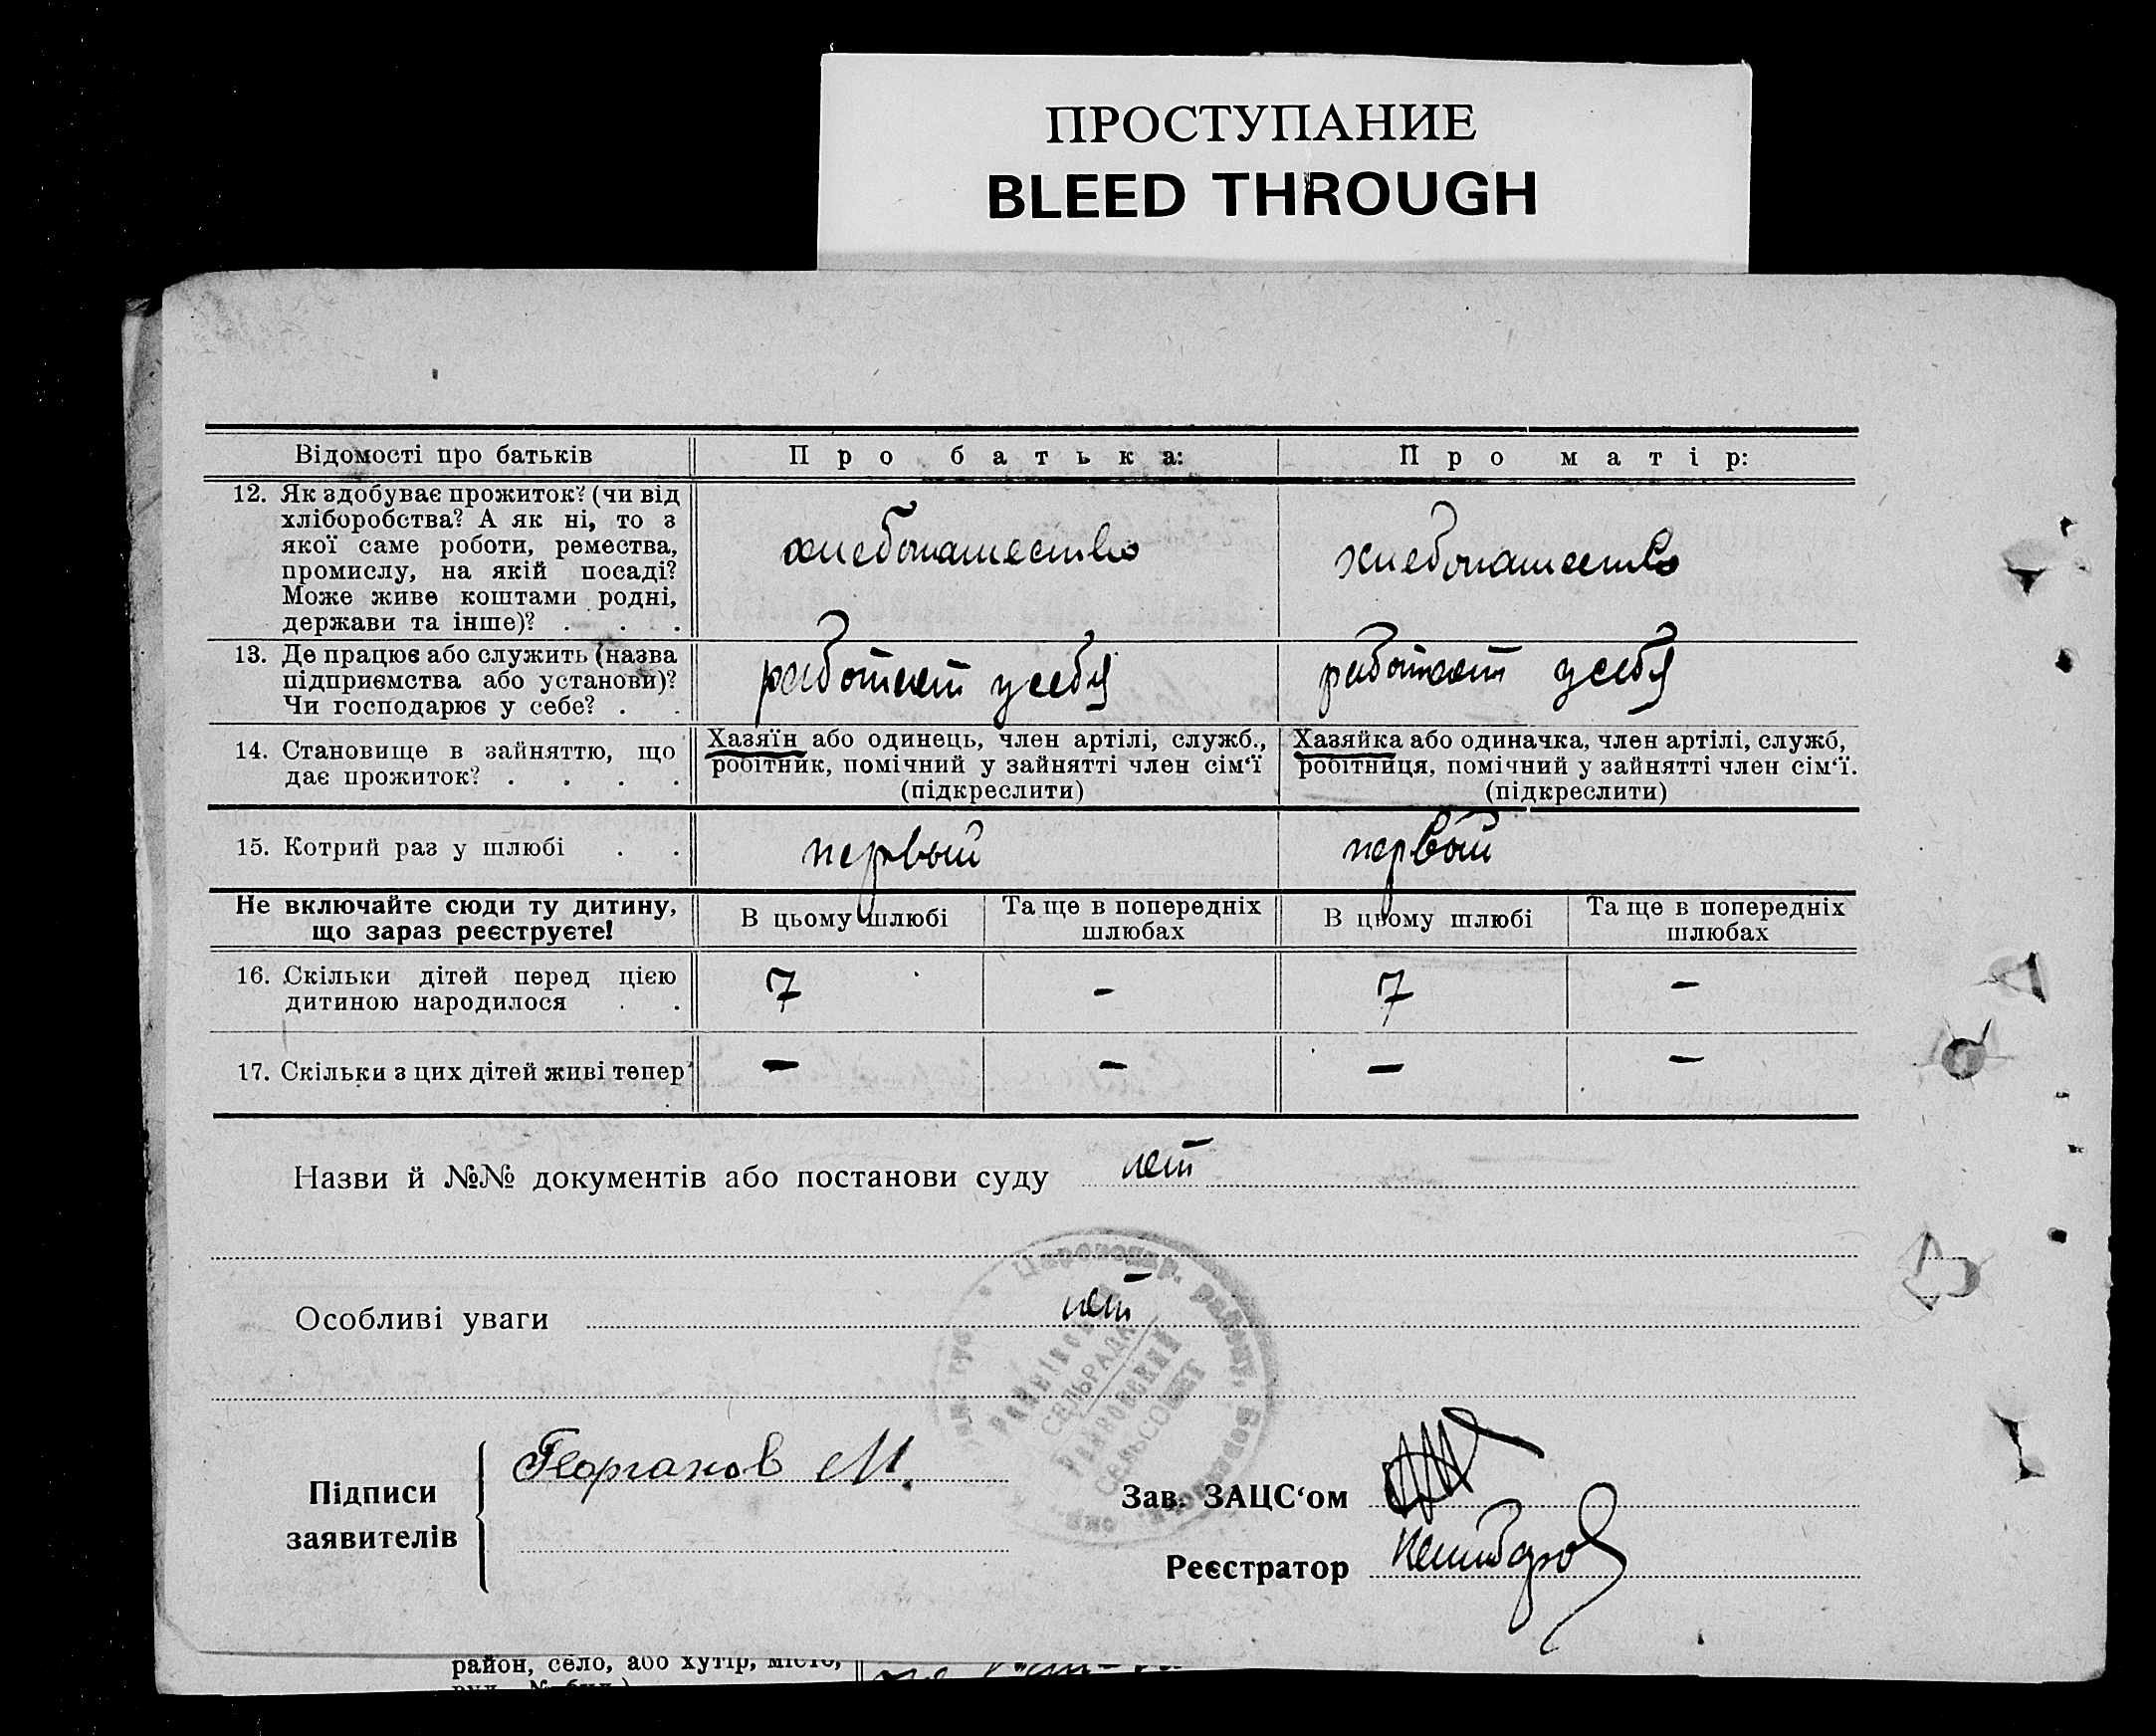 ПРОСТУПАНИЕ
BLEED THROUGH
Відомості про батьків
Про батька:
Про матір:
12. Як здобуває прожиток? (чи від
хліборобства? А як ні, то з
якої саме роботи, ремества,
промислу, на якій посаді?
Може живе коштами родні,
держави та інше)? . . .
хлебопашество
хлебопашество
13. Де працює або служить (назва
підприємства або установи)?
Чи господарює у себе? . .
работает у себя
работает у себя
14. Становище в зайняттю, що
дає прожиток? . . . .
Хазяїн або одинець, член артілі, служб.,
робітник, помічний у зайнятті член сім‘ї
(підкреслити)
Хазяйка або одиначка, член артілі, служб,
робітниця, помічний у зайнятті член сім‘ї.
(підкреслити)
15. Котрий раз у шлюбі . .
первый
первый
Не включайте сюди ту дитину,
що зараз реєструєте!
В цьому шлюбі
Та ще в попередніх
шлюбах
В цьому шлюбі
Та ще в попередніх
шлюбах
16. Скільки дітей перед цією
дитиною народилося . .
7
-
7
-
17. Скільки з цих дітей живі тепер
-
-
-
-
Назви й №№ документів або постанови суду нет
Особливі уваги нет
СЕЛЬРАДА
СЕЛЬСОВЕТ
Підписи
заявителів
М.
Зав. ЗАЦС‘ом
Реєстратор
район, село, або хутір, місто,